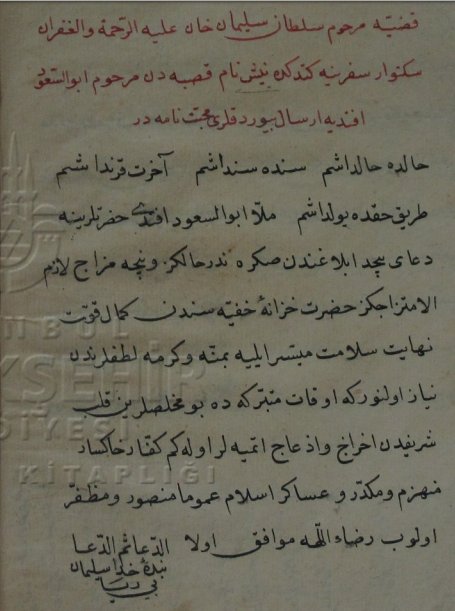 قضیّه مرحوم سلطان سلیمان خان علیه الرّحمة والغفران
سکتوار سفرینه کتدکده نیش نام قصبه دن مرحوم ابوالسّعود
افندیه ارسال بیوردقلری محبّت نامه در
حالده حالداشم سنده سنداشم آخرت قرنداشم
طریق حقده یولداشم ملّا ابوالسعود افندی حضرتلرینه
دعای بیحد ابلاغندن صکره ندر حالکز و نیجه مزاج لازم
الامتزاجکز حضرت خزانۀ خفیّه سندن کمال قوّت
نهایت سلامت میسّر ایلیه بمنّه و کرمه لطفلرندن
نیاز اولنور که اوقات متبرّکه ده بو مخلصلرین قلب
شریفدن اخراج و اذعاج اتمیه لر اوله کم کفّار خاکسار
منهزم و مکدّر و عساکر اسلام عموما منصور و مظفّر
اولوب رضاء اللّهه موافق اولا الدّعا ثمّ الدّعا
بندۀ خدا سلیمان
بی ریا
İSTANBUL
BÜYÜKŞEHİR
BELEDİYESİ
KİTAPLIĞI